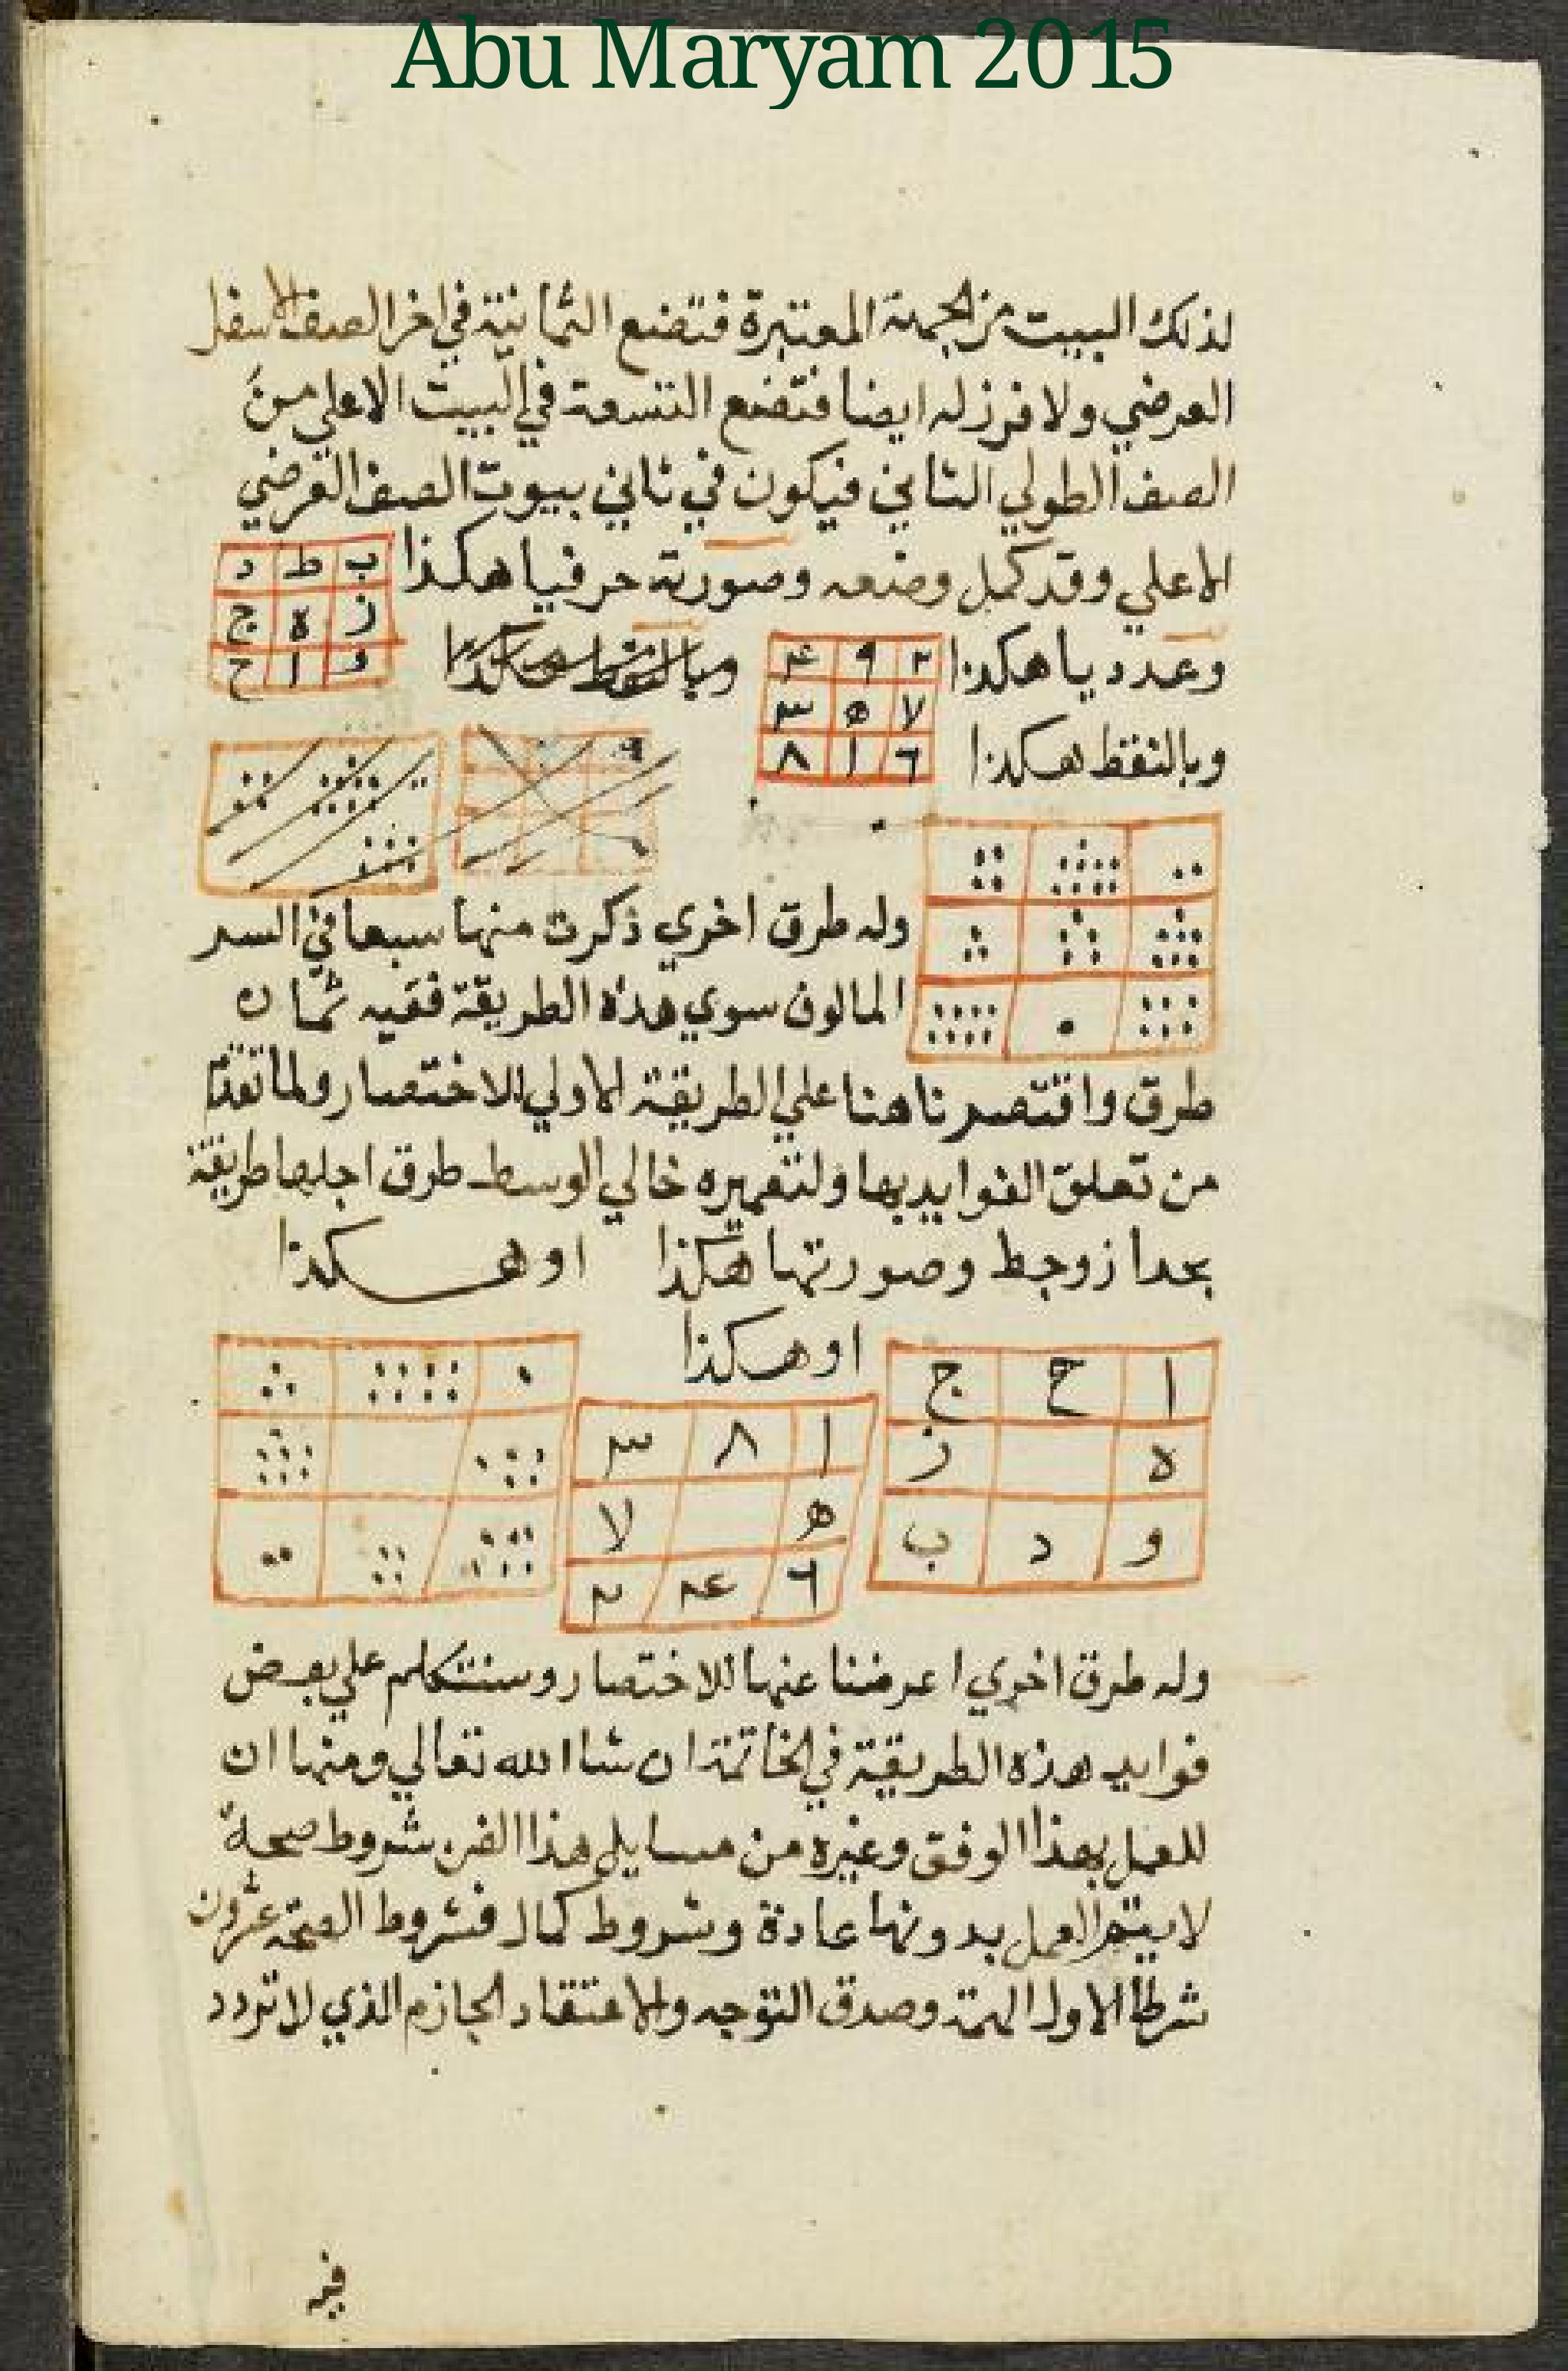 Abu Maryam 2015
لذلك البيت من الجهة المعتبرة فتضع الثمانية في اخر الصف الاسفل
العرضي ولا فرز له ايضا فتضع التسعة في البيت الاعلي من
الصف الطولي الثاني فيكون في ثاني بيوت الصف العرضي
الاعلي وقد كمل وضعه وصورته حرفيا هكذا
ب ط د
ز ه ج
و ا ح
وعدديا هكذا
٢ ٩ ٤
٧ ٥ ٣
٦ ١ ٨
وبالنقط هكذا
وبالنقط هكذا
وله طرق اخري ذكرت منها سبعا في السر
المالوف سوي هذه الطريقة ففيه ثمان
طرق واقتصرنا هنا علي الطريقة الاولي للاختصار ولما تقدم
من تعلق الفوايد بها ولتعميره خالي الوسط طرق اجلها طريقة
وصورتها هكذا او هكذا
او هكذا
ا ح ج
ه ز
و د ب
١ ٨ ٣
٥ ٧
٦ ٤ ٢
وله طرق اخري اعرضنا عنها للاختصار وسنتكلم علي بعض
فوايد هذه الطريقة في الخاتمة ان شا الله تعالي ومنها ان
للعمل بهذا الوفق وغيره من مسايل هذا الفن شروط صحة
لا يتم العمل بدونها عادة وشروط كمال فشروط الصحة عشرون
شرطا الاول الهمة وصدق التوجه والاعتقاد الجازم الذي لا تردد
فيه